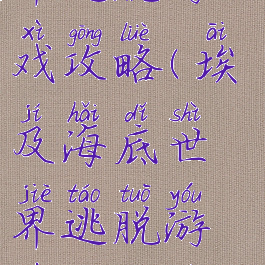 xì gōng lüè āi
戏攻略(埃
jí hǎi dǐ shì
及海底世
jiè táo tuō yóu
界逃脱游